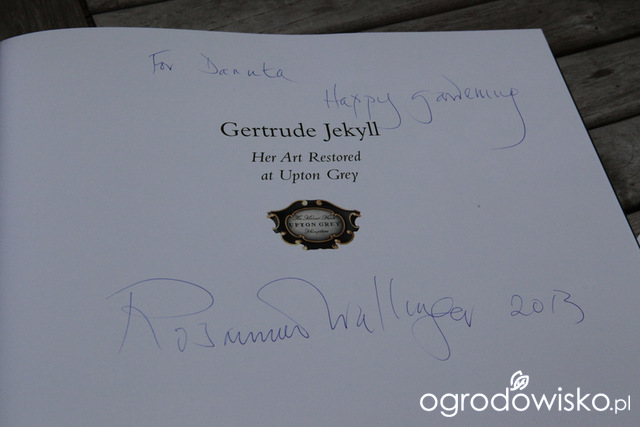 For Danuta
Happy gardening
Gertrude Jekyll
Her Art Restored
at Upton Grey
The Manor House
UPTON GREY
Rosamund Wallinger 2013
ogrodowisko.pl